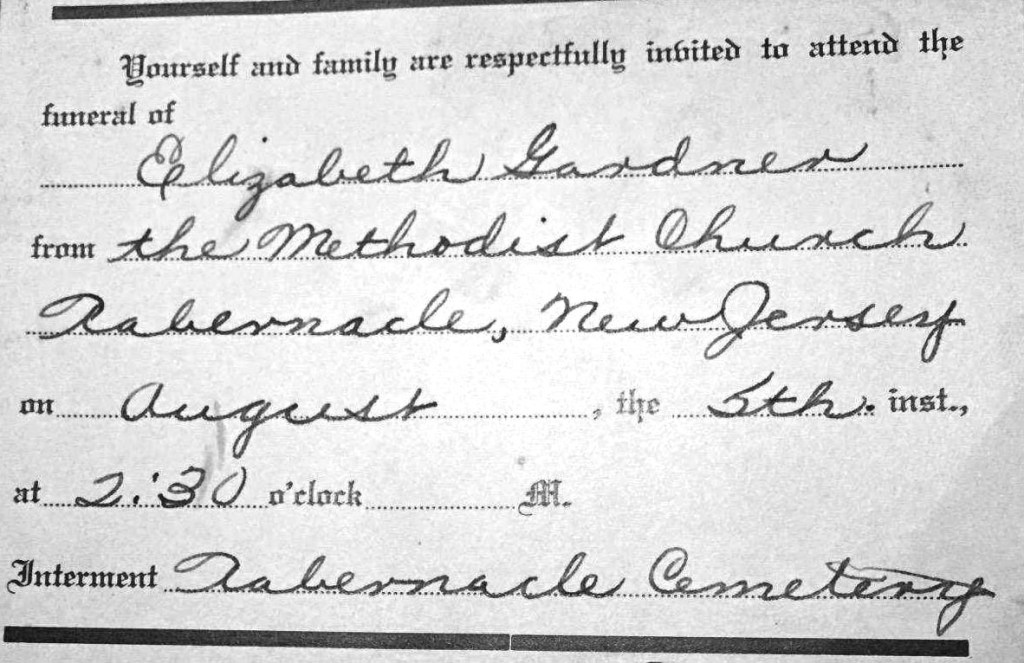 Yourself and family are respectfully invited to attend the
funeral of
Elizabeth Gardner
from the Methodist Church
Tabernacle, New Jersey
on August, the 5th. inst.,
at 2:30 o'clock M.
Interment Tabernacle Cemetery